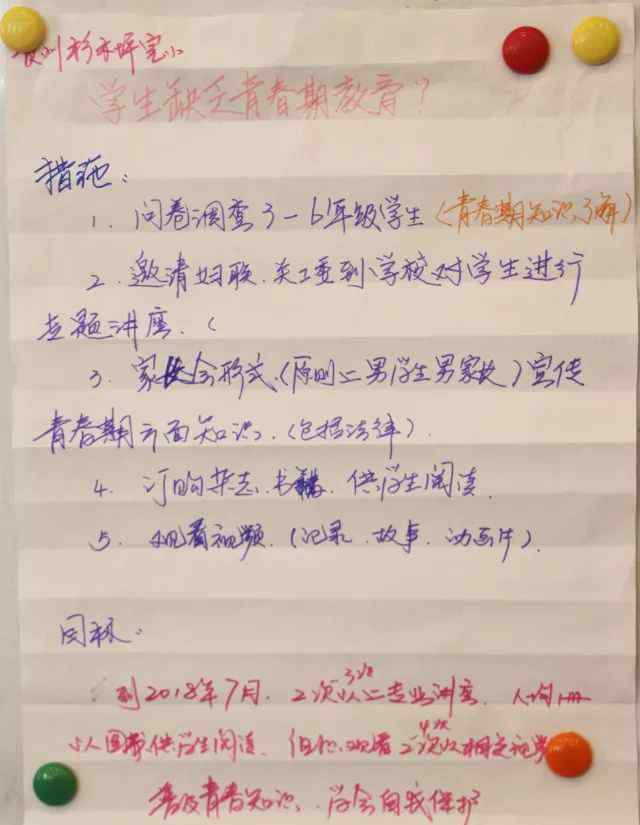 杉木坪完小
学生缺乏青春期教育？
措施：
1. 问卷调查3-6年级学生（青春期知识了解）
2. 邀请妇联、关工委到学校对学生进行
专题讲座．（
3. 家长会形式（原则上男学生男家长）宣传
青春期方面知识．（包括法律）．
4. 订购杂志、书籍、供学生阅读
5. 观看视频．（记录．故事．动画片）．
目标：
3次
到2018年7月．2次以上专业讲座．人均1册
以上图书供学生阅读．观看2次以相关视频
4次
普及青春知识、学会自我保护